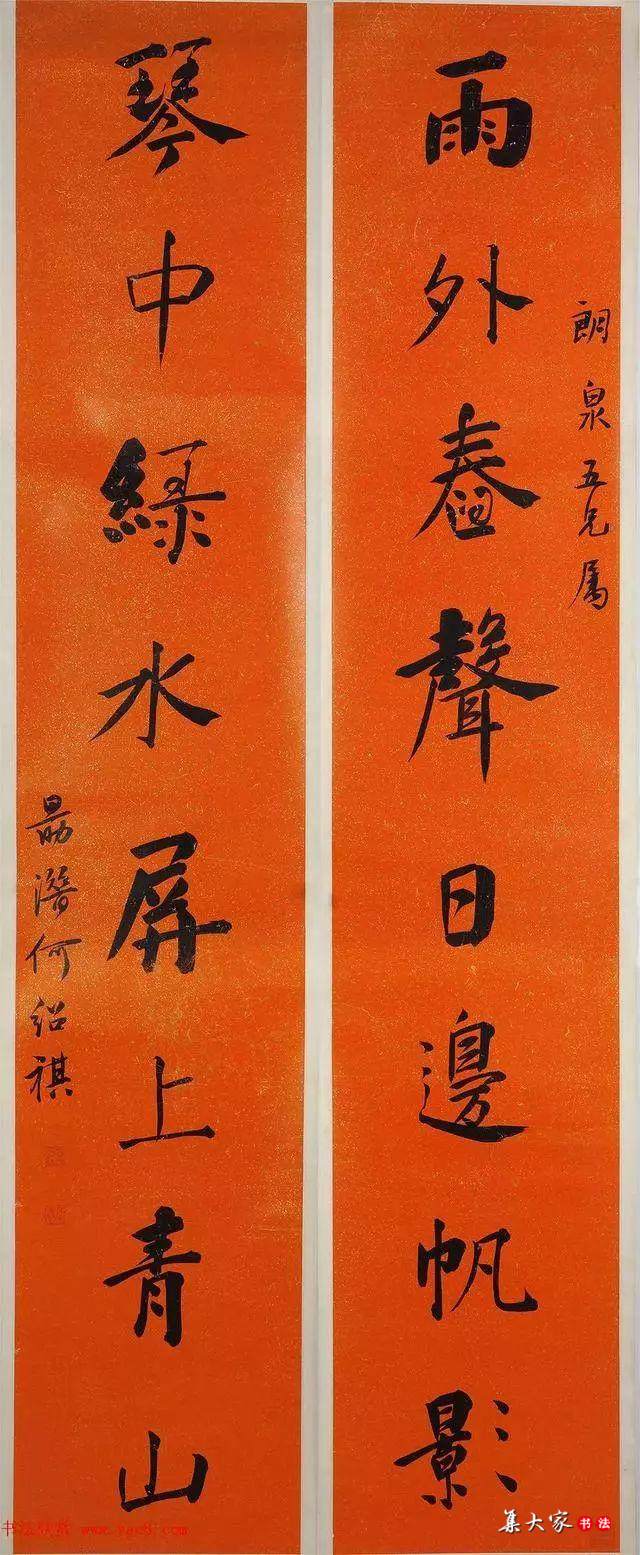 朗泉五兄属
雨外舂聲日邊帆影
琴中綠水屏上青山
勗潛何紹祺
集大家 书法
书法欣赏 www.yac8.com